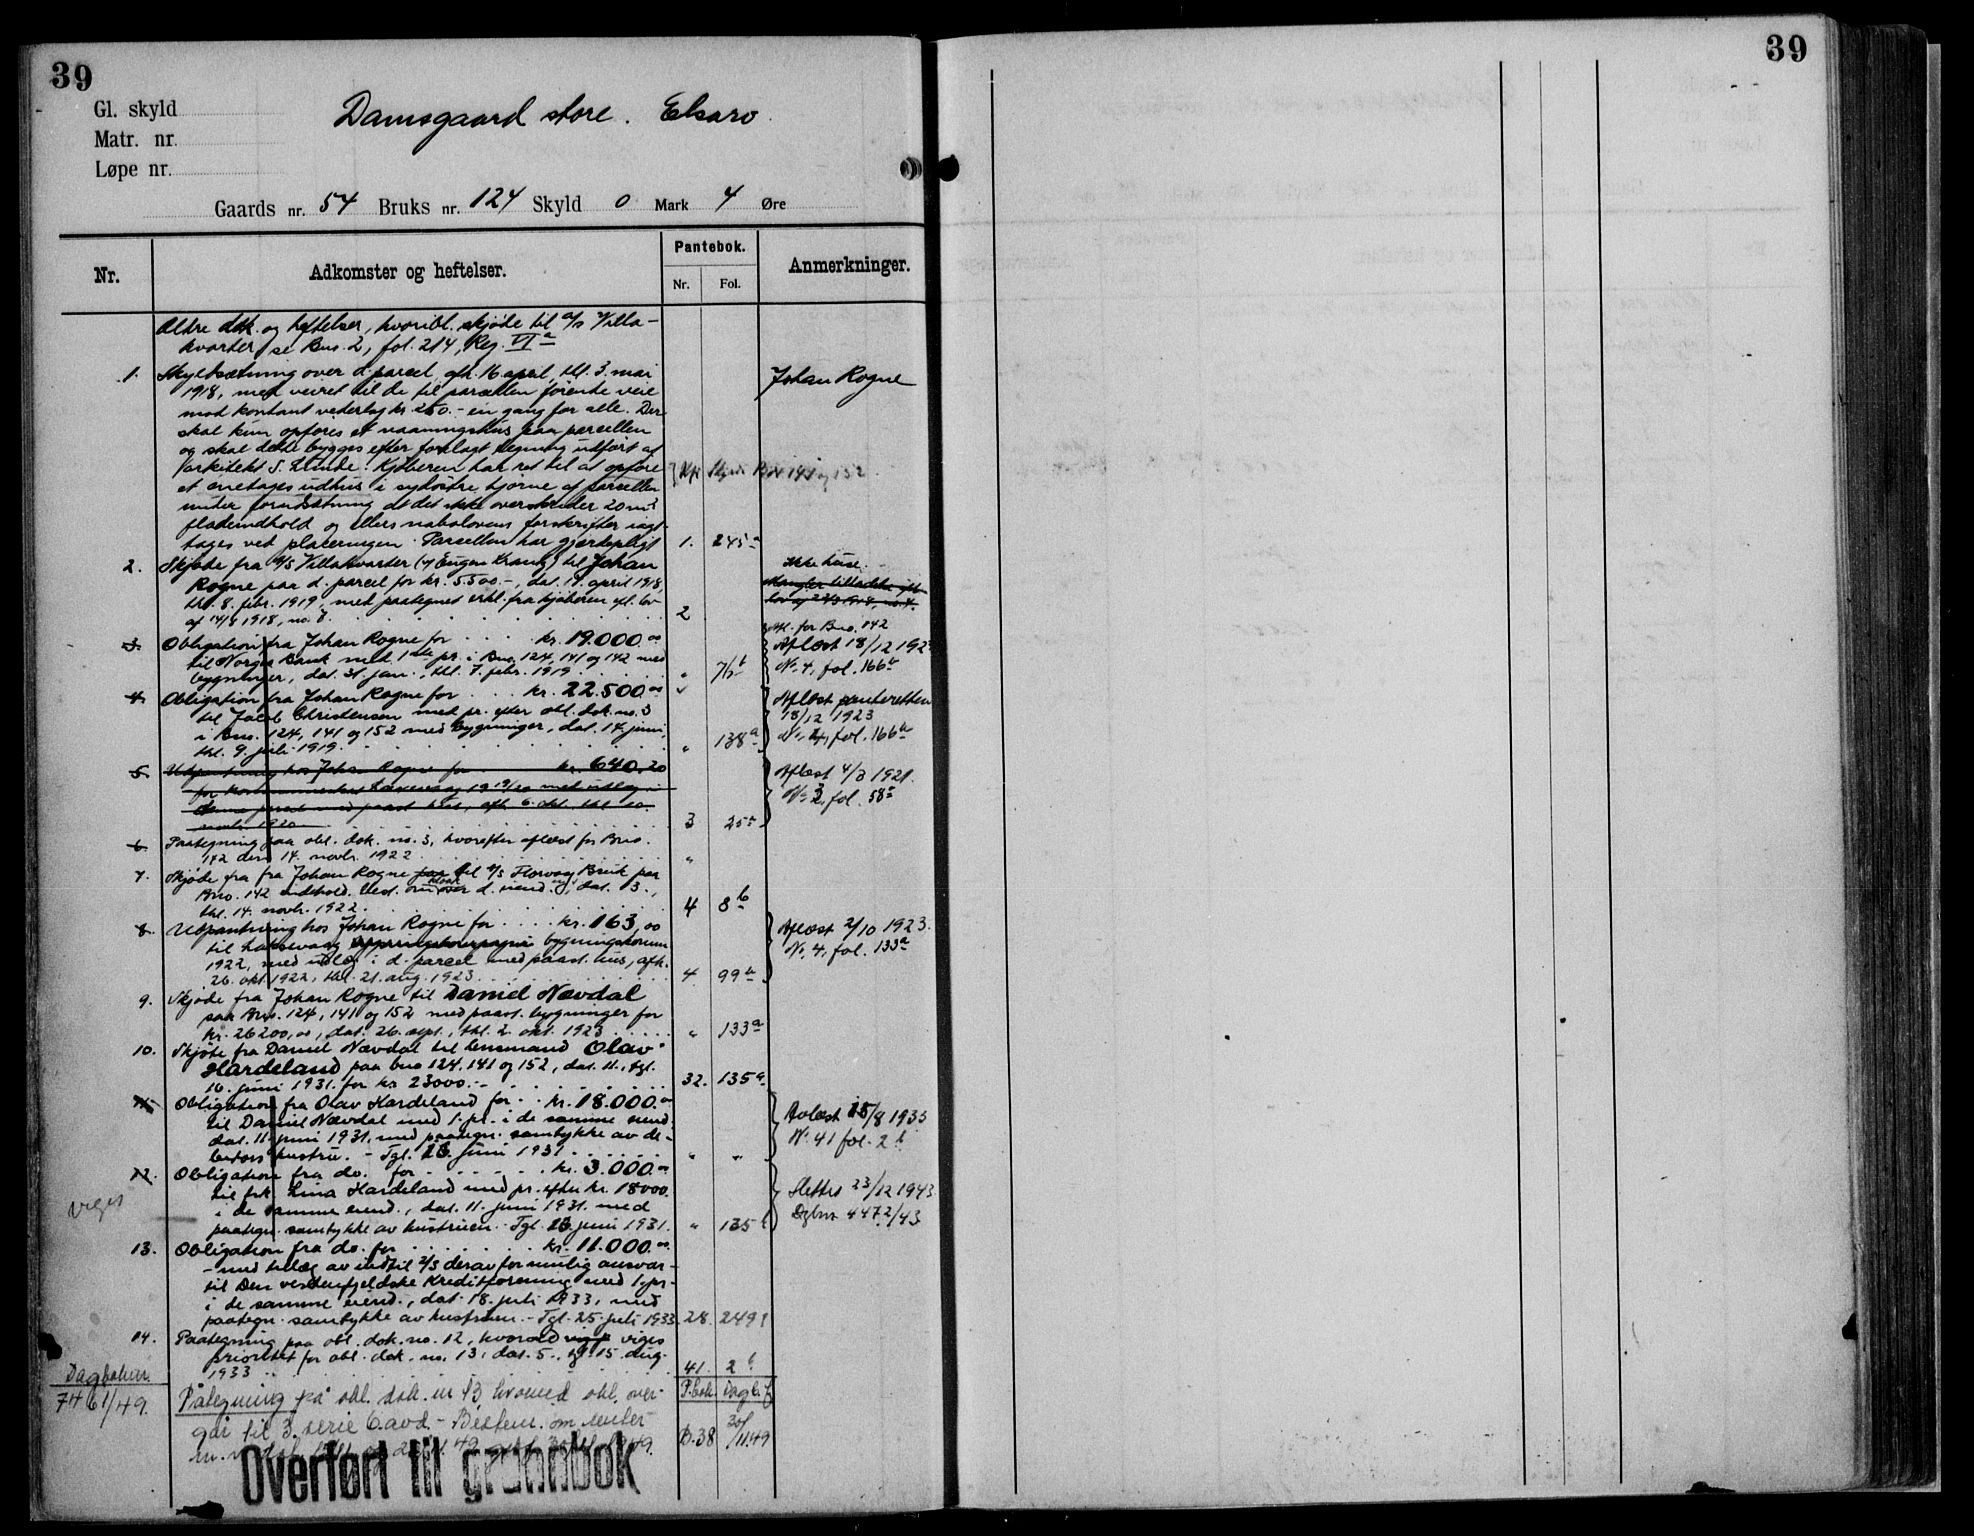 39
39
Gl. skyld
Matr. nr.
Løpe nr.
Damsgaard store. Elsaro
Gaards nr. 54 Bruks nr. 124 Skyld 0 Mark 4 Øre
Nr.
Adkomster og heftelser.
Pantebok.
Nr. Fol.
Anmerkninger.
Ældre dok. og heftelser, hvoribl. skjøde til A/S Villa-
kvarter, se Bno. 2, fol. 214, Reg. VI a
1. Skyldsætning over d. parcel, afh. 16. april, thl. 3. mai Johan Rogne
1918, med veiret til de til parcellen førende veie
mod kontant vederlag kr. 250.- en gang for alle. Der
skal kun opføres et vaaningshus paa parcellen
og skal dette bygges efter forelagt tegning utført af
arkitekt S. Lunde. Kjøberen har ret til at opføre
et enetages udhus i sydøstre hjørne af parcellen
under forudsætning at det ikke overskrider 20 m2
fladeindhold og ellers nabolovens forskrifter iagt-
tages ved placeringen. Parcellen har gjerdepligt 1. 245 a
2. Skjøde fra A/S Villakvarter (v/ Eugen Krantz) til Johan
Rogne paa d. parcel for kr. 5500.-, dat. 17. april 1918,
thl. 8. febr. 1919, med paategnet erkl. fra kjøberen efl. lov
af 14/8 1918, no. 8. 2
Ikke huse.
Mangler tilladelse ift.
3. Obligation fra Johan Rogne for kr. 19.000.00
til Norges Bank med 1ste pr. i Bno. 124, 141 og 142 med
bygninger, dat. 31. jan., thl. 7. febr. 1919
Afl. for Bno. 142
Aflæst 18/12 1923
No. 4, fol. 166 a
4. Obligation fra Johan Rogne for kr. 22.500.00
til Jacob Christensen med pr. efter obl. dok. no. 3
i Bno. 124, 141 og 152 med bygninger, dat. 14. juni,
thl. 9. juli 1919. " 138 a
Aflæst panteretten
18/12 1923
No. 4, fol. 166 a
5. Udpantning hos Johan Rogne for kr. 640,20
for kommuneskat Laksevaag 1919/20 med utlæg i
denne parcel med paast. hus, afh. 6. okt., thl. 10.
novbr. 1920 3 25 a
Aflæst 4/3 1921.
No. 3, fol. 58 a
6. Paategning paa obl. dok. no. 3, hvorefter aflæst for Bno.
142 den 14. novbr. 1922 "
7. Skjøde fra fra Johan Rogne til A/S Florvaag Bruk paa
Bno. 142 indehold. best. om kloak over d. eiend. m.v., dat. 13.,
thl. 14. novbr. 1922. 4 8 b
8. Udpantning hos Johan Rogne for kr. 163,00
til Laksevaag bygningskomm.
1922, med utlæg i d. parcel med paast. hus, afh.
26. okt. 1922, thl. 21. aug. 1923. 4 99 b
Aflæst 2/10 1923.
No. 4, fol. 133 a
9. Skjøde fra Johan Rogne til Daniel Nævdal
paa Bno. 124, 141 og 152 med paast. bygninger for
kr. 26200,00, dat. 26. sept., thl. 2. okt. 1923 " 133 a
10. Skjøte fra Daniel Nævdal til lensmand Olav
Hardeland paa bno 124, 141 og 152, dat. 11., tgl.
16. juni 1931. for kr. 23000.- 32. 135 a.
11. Obligation fra Olav Hardeland for kr. 18.000.00
til Daniel Nævdal med 1. pr. i de samme eiend.
dat. 11. juni 1931, med paategn. samtykke av de-
bitors hustru. - Tgl. 16. juni 1931 " "
Avlæst 15/8 1933
No. 41 fol. 2 b
12. Obligation fra do. for kr. 3.000.00
til frk. Lina Hardeland med pr. efter kr. 18000.
i de samme eiend., dat. 11. juni 1931. med
paategn. samtykke av hustruen. - Tgl. 16. juni 1931. " 135 b
viges
Slettes 23/12 1943
Dgbnr. 4472/43
13. Obligation fra do. for kr. 11.000.00.
- med tillæg av indtil 2/3 derav for mulig ansvar -
til Den vestenfjeldske Kreditforening med 1. pr.
i de samme eiend., dat. 18. juli 1933, med
paategn. samtykke av hustruen. - Tgl. 25. juli 1933. 28. 249
14. Paategning paa obl. dok. no. 12, hvorved viges
prioritet for obl. dok. no. 13. dat. 5., tgl. 15. aug.
1933 41. 2 b
Dagboknr.
7461/49.
Påtegning på obl. dok. nr 13, hvorved obl. over-
går til 3. serie 6. avd. - Bestem. om renter
P.bok. Dagb.f.
B.38 30/11.49
Overført til grunnbok